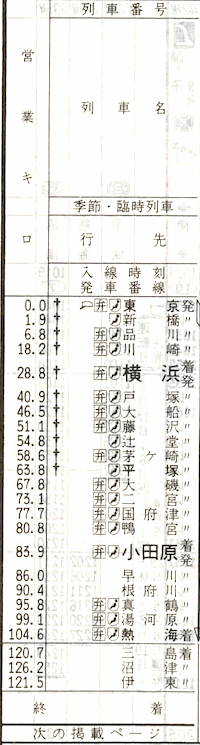 列車番号
営業キロ
列車名
季節・臨時列車
行先
入線時刻
発車番線
0.0 † 弁 東京発
1.9 † 新橋〃
6.8 † 弁 品川〃
18.2 † 弁 川崎〃
28.8 † 弁 横浜 着発
40.9 † 弁 戸塚〃
46.5 † 弁 大船〃
51.1 † 弁 藤沢〃
54.8 † 辻堂〃
58.6 † 弁 茅ケ崎〃
63.8 † 平塚〃
67.8 弁 大磯〃
73.1 弁 二宮〃
77.7 弁 国府津〃
80.8 弁 鴨宮〃
83.9 弁 小田原 着発
86.0 早川〃
90.4 根府川〃
95.8 弁 真鶴〃
99.1 弁 湯河原〃
104.6 弁 熱海着
120.7 三島着
126.2 沼津〃
121.5 伊東〃
終着
次の掲載ページ